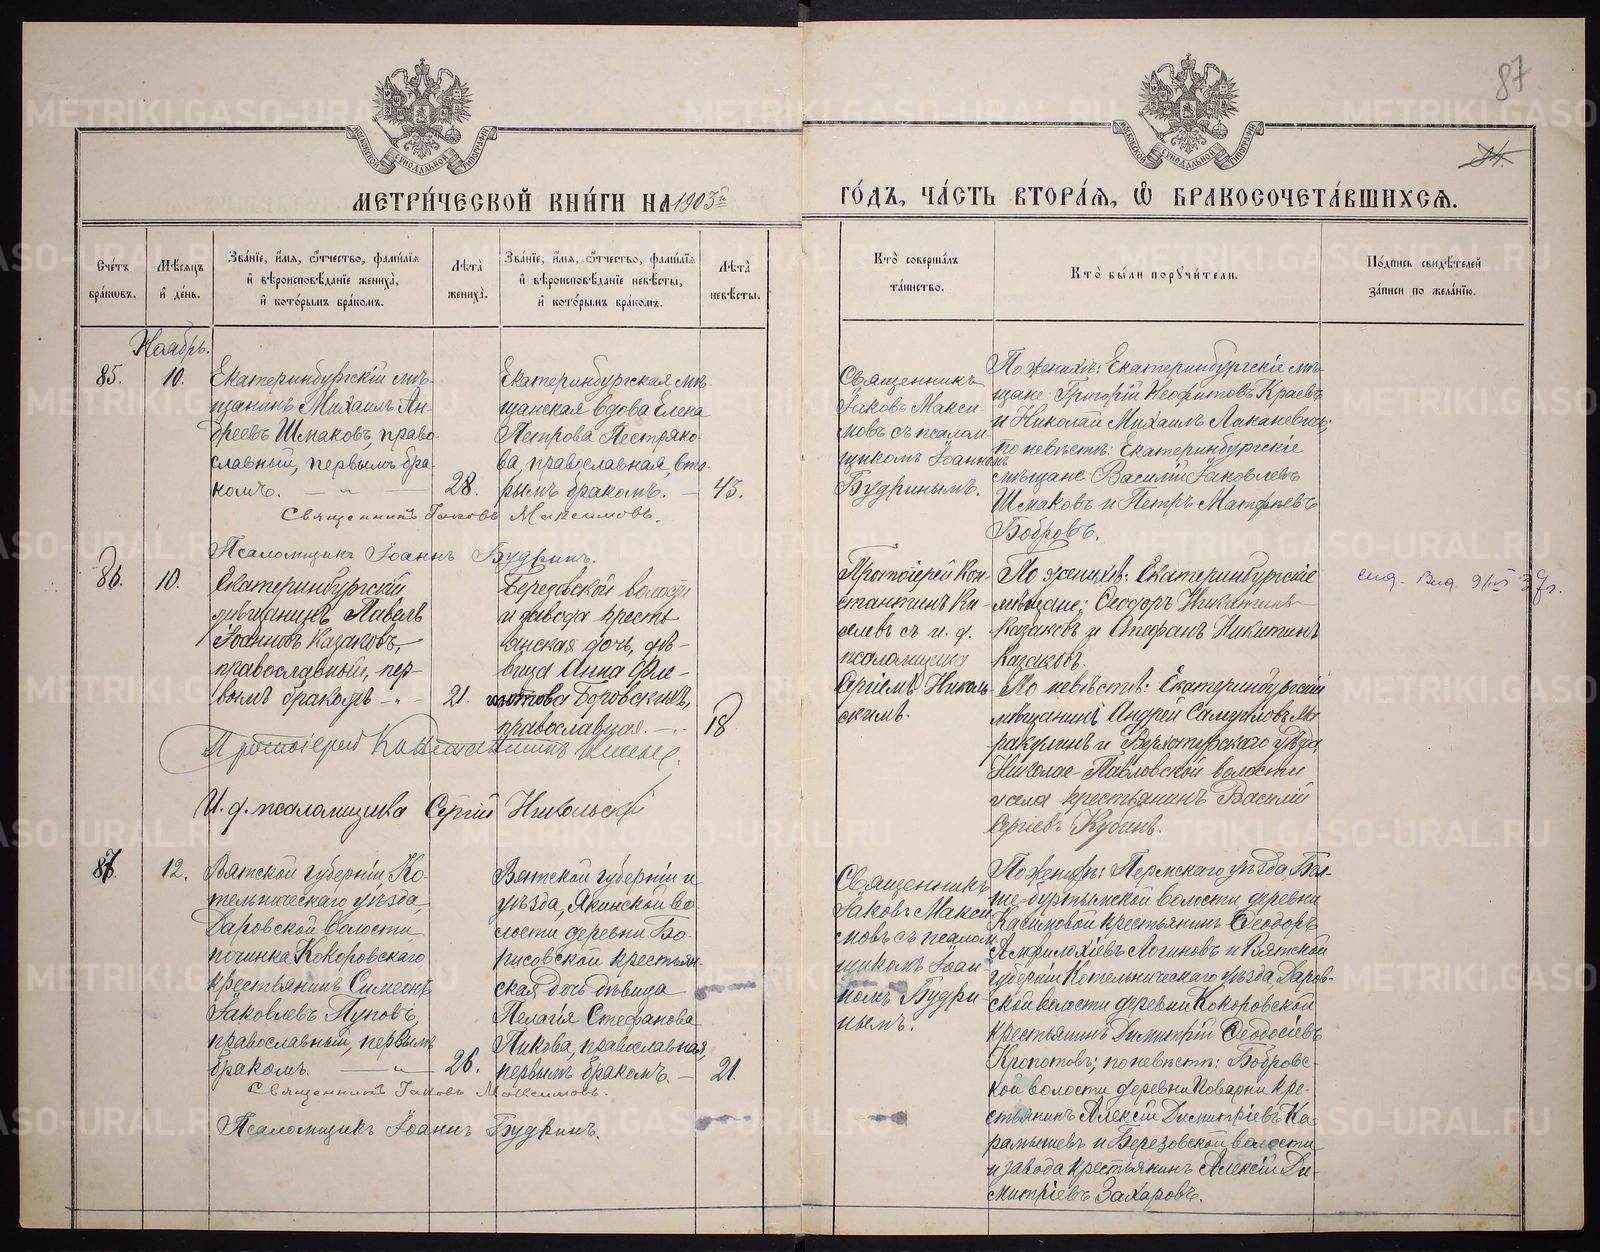 87
МЕТРИЧЕСКОЙ КНИГИ НА 1903й
ГОДЪ, ЧАСТЬ ВТОРАЯ, Ѡ БРАКОСОЧЕТАВШИХСЯ.
Счетъ браковъ.
Мѣсяцъ и день.
Званіе, имя, отчество, фамилія и вѣроисповѣданіе жениха, и которымъ бракомъ.
Лѣта жениха.
Званіе, имя, отчество, фамилія и вѣроисповѣданіе невѣсты, и которымъ бракомъ.
Лѣта невѣсты.
Кто совершалъ таинство.
Кто были поручители.
Подпись свидѣтелей записи по желанію.
Ноябрь.
85.
10.
Екатеринбургскій мѣ-
щанинъ Михаилъ Ан-
дреевъ Шмаковъ, право-
славный, первымъ бра-
комъ.
28.
Екатеринбургская мѣ-
щанская вдова Елена
Петрова Пестряко-
ва, православная, вто-
рымъ бракомъ.
43.
Священникъ
Іаковъ Макси-
мовъ съ псалом-
щикомъ Іоанномъ
Будринымъ.
По женихѣ: Екатеринбургскіе мѣ-
щане Григорій Неофитовъ Краевъ
и Николай Михаилъ
по невѣстѣ: Екатеринбургскіе
мѣщане Василій Іаковлевъ
Шмаковъ и Петръ Матфѣевъ
Бобровъ.
Священникъ Іаковъ Максимовъ.
Псаломщикъ Іоаннъ Будринъ.
86.
10.
Екатеринбургскій
мѣщанинъ Павелъ
Іоанновъ Казаковъ,
православный, пер-
вымъ бракомъ
21.
Березовской волости
и завода кресть-
янская дочь, дѣ-
вица Анна Фле-
гонтова Боровскихъ,
православная.
18
Протоіерей Кон-
стантинъ
съ и. д.
псаломщика
Сергіемъ Николь-
скимъ.
По женихѣ: Екатеринбургскіе
мѣщане; Ѳеодоръ Никитинъ
Казаковъ и Стефанъ Никитинъ
Казаковъ.
По невѣстѣ: Екатеринбургскій
мѣщанинъ Андрей Самуиловъ Ма-
ракулинъ и Верхотурскаго уѣзда
Николае-Павловской волости
и села крестьянинъ Василій
Сергіевъ Кубинъ.
Протоіерей Константинъ
И. д. псаломщика Сергій Никольскій
87.
12.
Вятской губерніи Ко-
тельническаго уѣзда,
Даровской волости
починка Кокоровскаго
крестьянинъ Симеонъ
Іаковлевъ Пуповъ,
православный, первымъ
бракомъ.
26.
Вятской губерніи и
уѣзда, Якшинской во-
лости деревни Бо-
рисовской крестьян-
ская дочь дѣвица
Пелагія Стефанова
Пикова, православная,
первымъ бракомъ.
21.
Священникъ
Іаковъ Макси-
мовъ съ псалом-
щикомъ Іоан-
номъ Будри-
нымъ.
По женихѣ: Пермскаго уѣзда Боль-
ше-буртымской волости деревни
Касимовой крестьянинъ Ѳеодоръ
Амфилохіевъ Логиновъ и Вятской
губерніи Котельническаго уѣзда, Даров-
ской волости деревни Кокоровской
крестьянинъ Димитрій Ѳеодосіевъ
Кропотовъ; по невѣстѣ: Бобровс-
кой волости деревни Поварни кре-
стьянинъ Алексій Димитріевъ Ка-
рамышевъ и Березовской волости
и завода крестьянинъ Алексій Ди-
митріевъ Захаровъ.
Священникъ Іаковъ Максимовъ.
Псаломщикъ Іоаннъ Будринъ.
METRIKI.GASO-URAL.RU